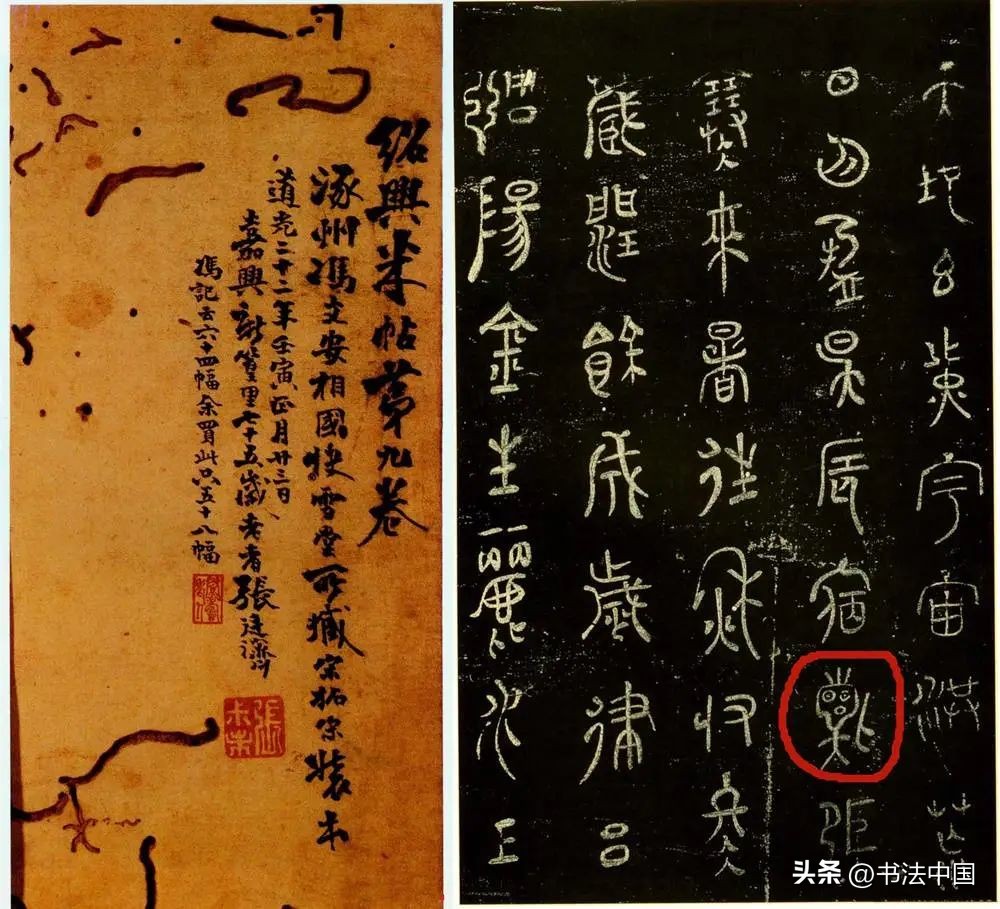 紹興米帖第九卷
涿州馮文安相國快雪堂所藏宋拓宋裝本
道光二十二年壬寅正月廿三日
嘉興新篁里七十五歲老者張廷濟
馮記云六十四幅余買此只五十八幅
天地玄黃宇宙洪荒
日月盈昃辰宿列張
寒來暑往秋收冬
藏閏餘成歲律呂
調陽金生麗水玉
头条 @书法中国